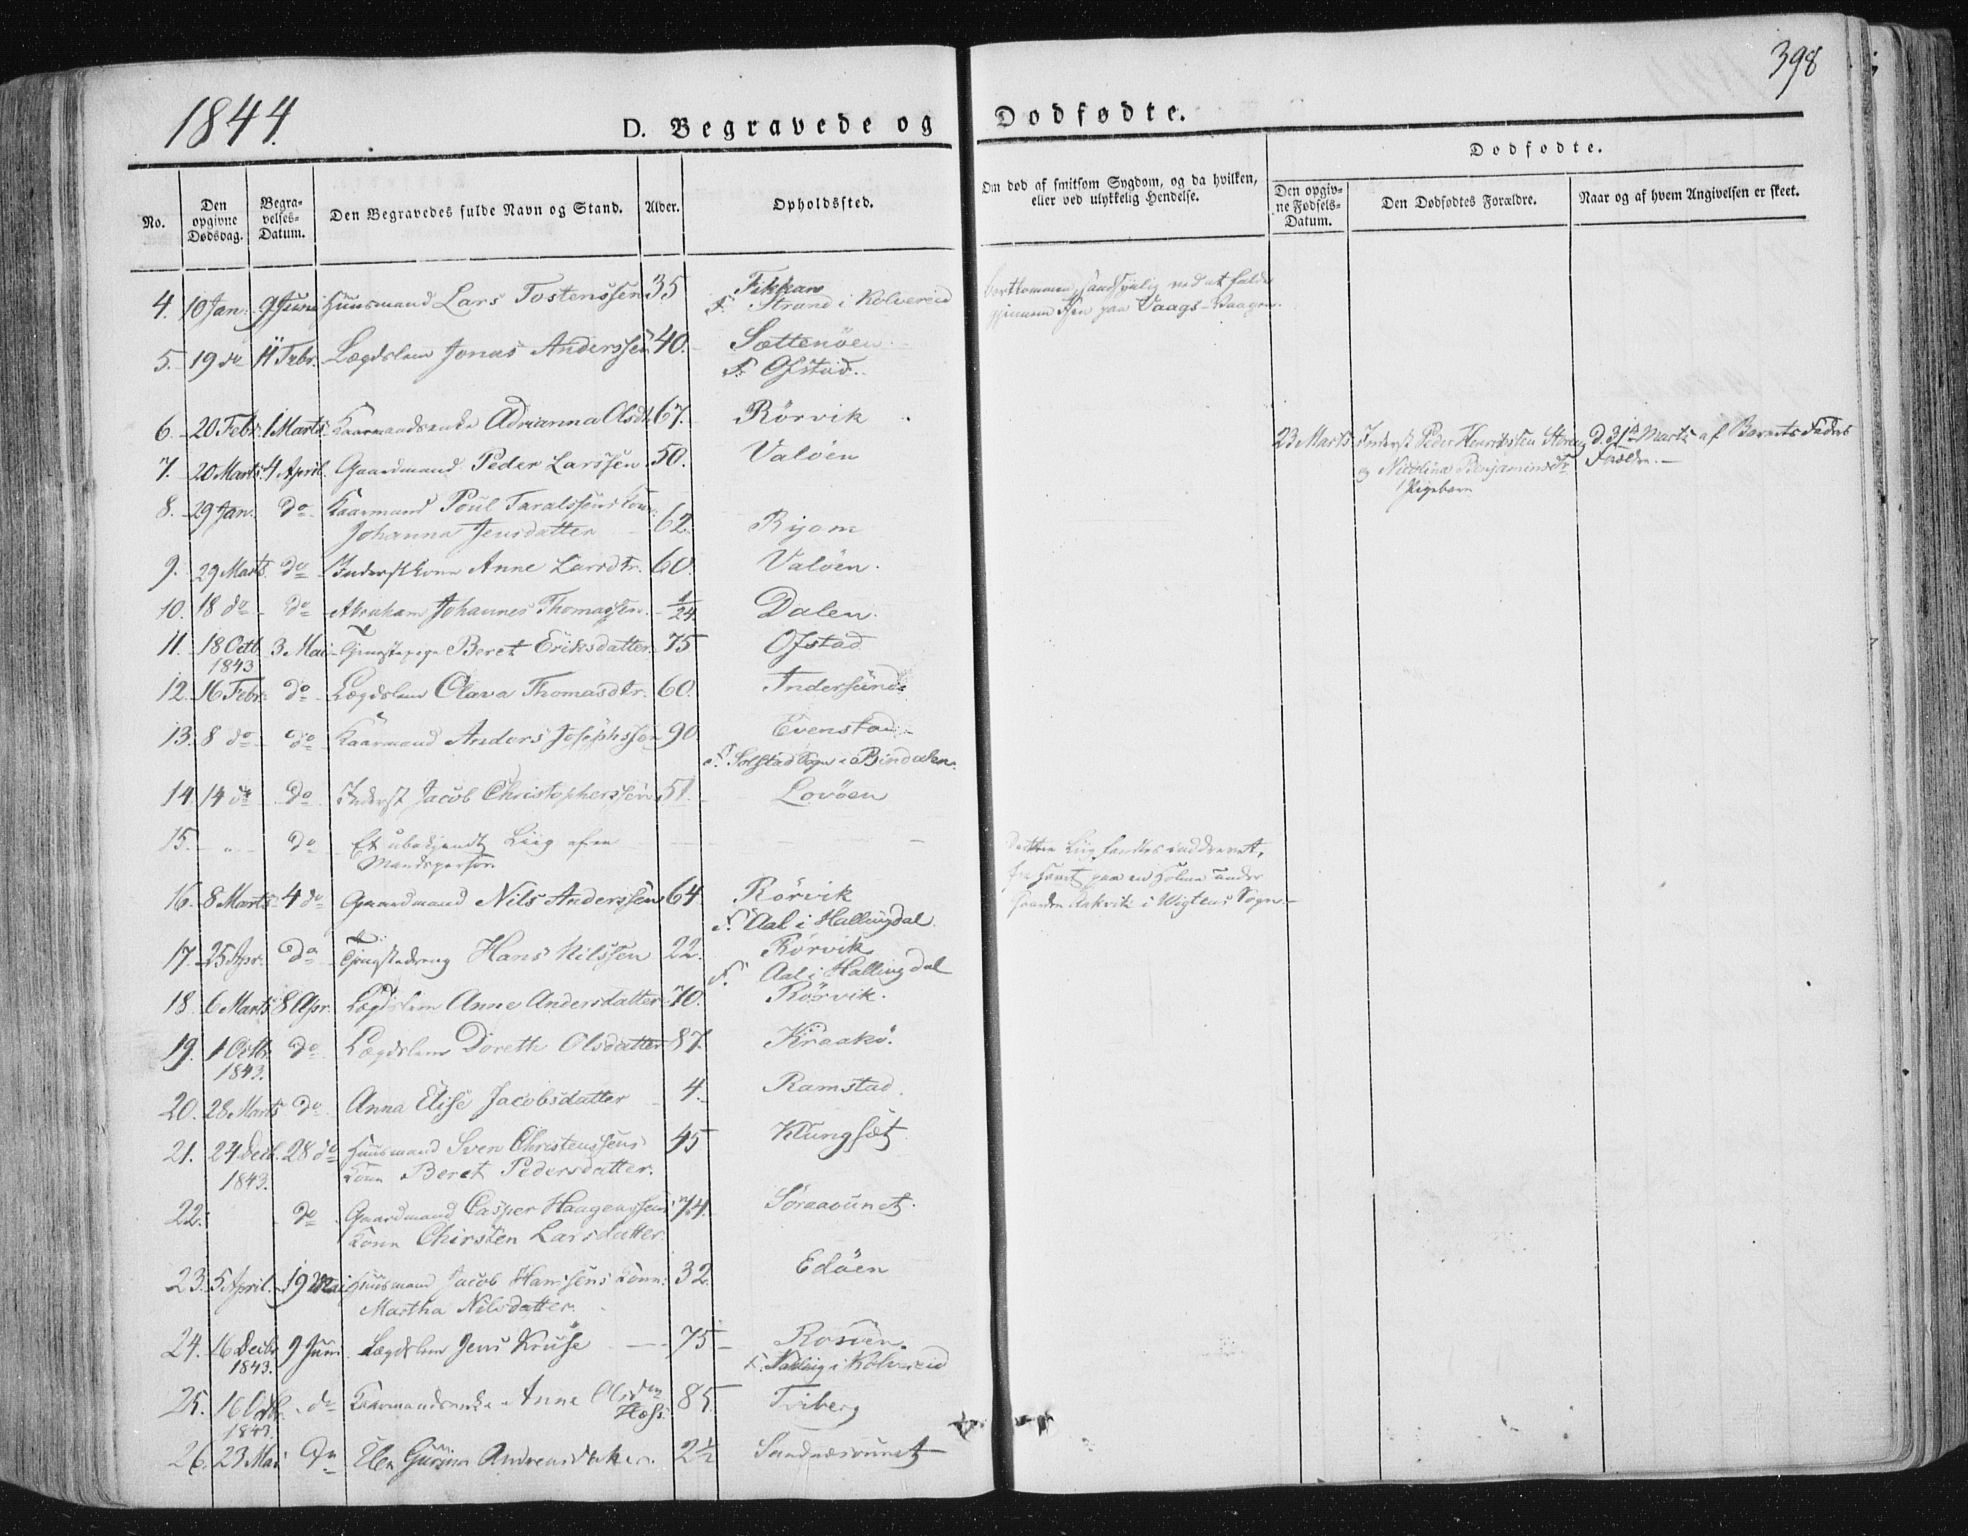 1844.
398
D. Begravede og Dødfødte.
No.
Den opgivne Dødsdag.
Begravelses-Datum.
Den Begravedes fulde Navn og Stand.
Alder.
Opholdssted.
Om død af smitsom Sygdom, og da hvilken, eller ved ulykkelig Hendelse.
Dødfødte.
Den opgivne Fødsels-Datum.
Den Dødfødtes Forældre.
Naar og af hvem Angivelsen er skeet.
4. 10 Jan. 9 Juni Huusmand Lars Tostenssen 35 Fikkan
F. Strand i Kolvereid
gjennem Isen paa Vaags-Vaagen.
5. 19 do 11 Febr. Lægdslem Jonas Anderssen 40. Sættenöen
F. Ofstad.
6. 20 Febr. 1 Marts Kaarmandsenke Adrianna Olsdt. 67. Rörvik
23 Marts Inderst Peder Henrikssen d. 31te Marts af Barnets Fader
7. 20 Marts 4 April Gaardmand Peder Larssen 50. Valöen
og Nicolina Benjaminsdtr.
Pigebarn
8. 29 Jan. do Kaarmand Poul Taralssens Kone
Johanna Jensdatter 62. Ryom
9. 29 Marts do Inderstkone Anne Larsdtr. 60. Valöen.
10. 18 do do Abraham Johannes Thomassen 1/24 Dalen.
11. 18 Octb. 3 Mai Beret Eriksdatter 75 Ofstad
1843
12. 16 Febr. do Lægdslem Olava Thomasdtr. 60. Indersund
13. 8 do do Kaarmand Anders Josephssen 90 Evenstad
F. Solstad Sogn i Bindalen.
14. 14 do do Inderst Jacob Christopherssen 51. Lovöen
15. " do Et ubekjendt Liig af en
Mandsperson.
Liig fandtes inddrevet,
fra Havet paa en Holme under
i Vigtens Sogn
16. 8 Marts 4 do Gaardmand Nils Anderssen 64 Rörvik
F. Aal i Hallingdal
17. 25 Apr. do Tjenestedreng Hans Nilssen 22. Rörvik
F. Aal i Hallingdal
18. 6 Marts 8 Apr. Lægdslem Anne Andersdatter 70. Rörvik.
19. 1 Octb. do Lægdslem Dorethe Olsdatter 87. Kraakö.
1843.
20. 28 Marts do Anna Elise Jacobsdatter 4. Ramstad.
21. 24 Decb. 28 do Huusmand Sven Christenssens 45 Klungsæt
1843. Kone Beret Pedersdatter.
22. do Gaardmand Casper Haagenssens 74. Söraavunet.
Kone Chirsten Larsdatter.
23. 5 April. 19 Mai Huusmand Jacob Hanssens Kone 32 Edöen
Martha Nilsdatter.
24. 16 Decb. 9 Juni Lægdslem Jens Kruse 75
1843. i Kolvereid
25. 16 Octb. do Kaarmandsenke Anne Olsdtr. 85. Tviberg
1843.
26. 23 Mai do Andreasdatter. 2 1/2